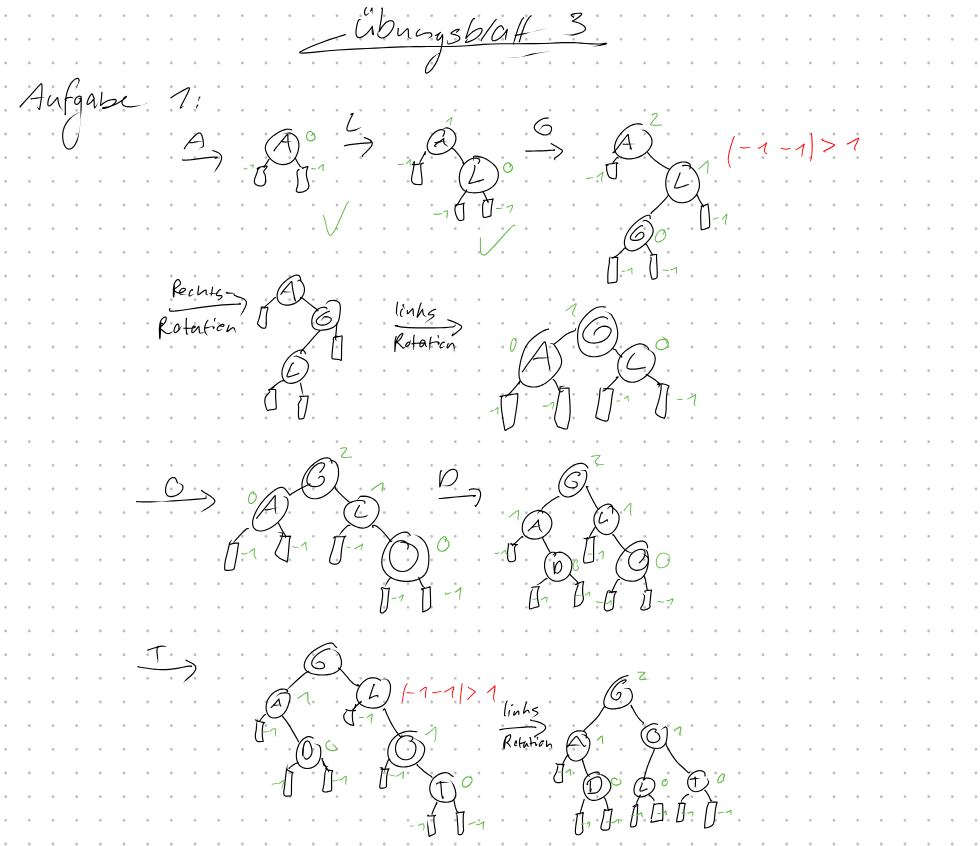 Übungsblatt 3
Aufgabe 1:
A L G
A 0 -1 -1
1 A -1 L 0 -1 -1
2 A -1 L 1 -1 G 0 -1 -1
|-1 -1|> 1
Rechts-
Rotation
A G L
links
Rotation
1 G 0 A L 0 -1 -1 -1 -1
O
2 G 0 A L 1 -1 -1 -1 O 0 -1 -1
D
2 G 1 A L 1 -1 -1 D O 0 -1 -1 -1 -1
T
G A 1 L -1 -1 D 0 O 1 -1 -1 -1 T 0 -1 -1
|-1-1|> 1
links
Rotation
2 G A 1 O 1 -1 D 0 L 0 T 0 -1 -1 -1 -1 -1 -1